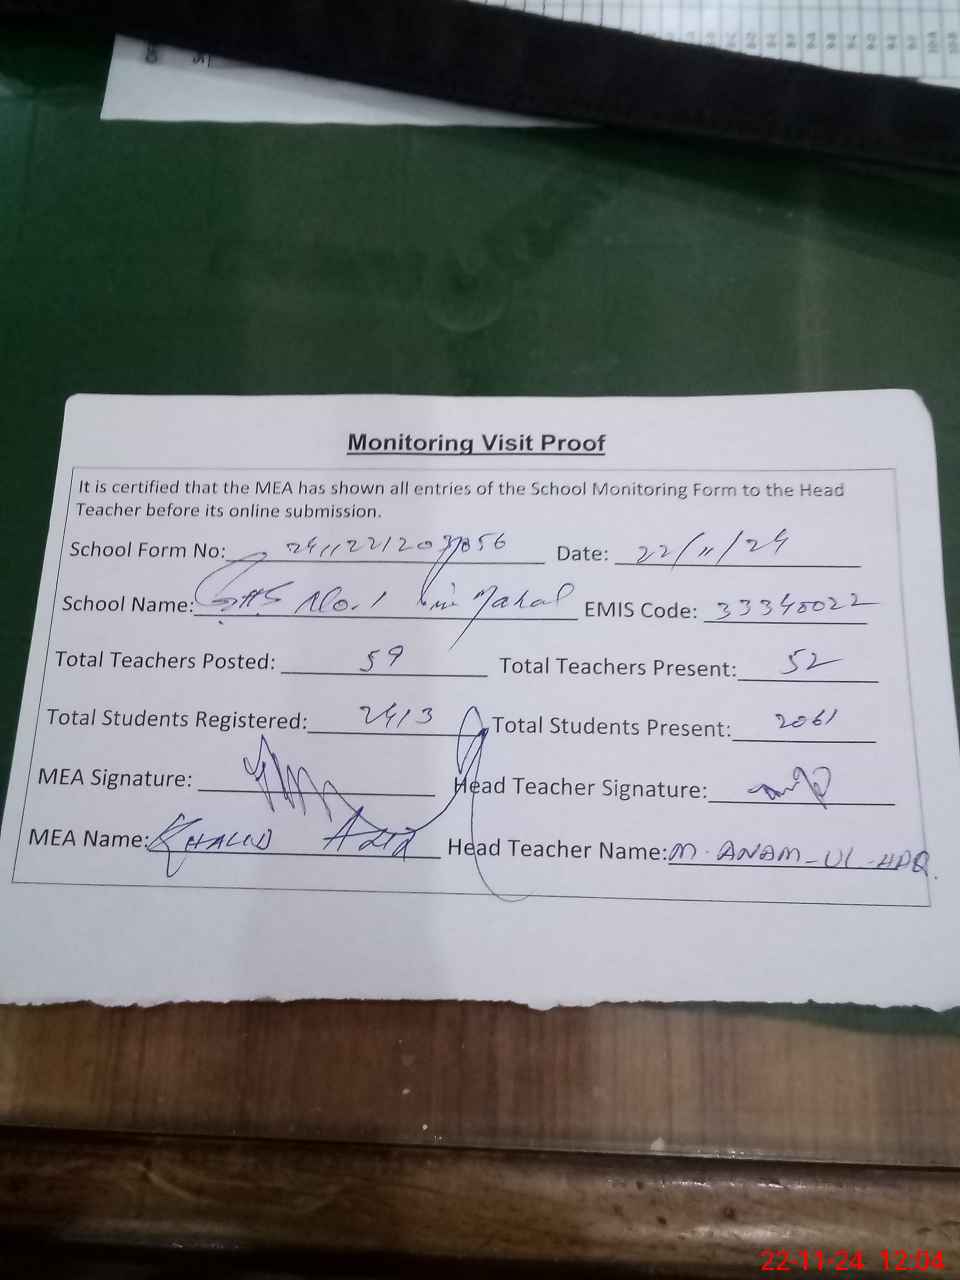 Monitoring Visit Proof
It is certified that the MEA has shown all entries of the School Monitoring Form to the Head
Teacher before its online submission.
School Form No: Date: 22/11/24
School Name: GHS No. 1 Mahal EMIS Code: 33340022
Total Teachers Posted: 59 Total Teachers Present: 52
Total Students Registered: 2413 Total Students Present: 2061
MEA Signature: Head Teacher Signature:
MEA Name: KHALID AZIZ Head Teacher Name: M. ANAM-UL-HAQ.
22-11-24 12:04